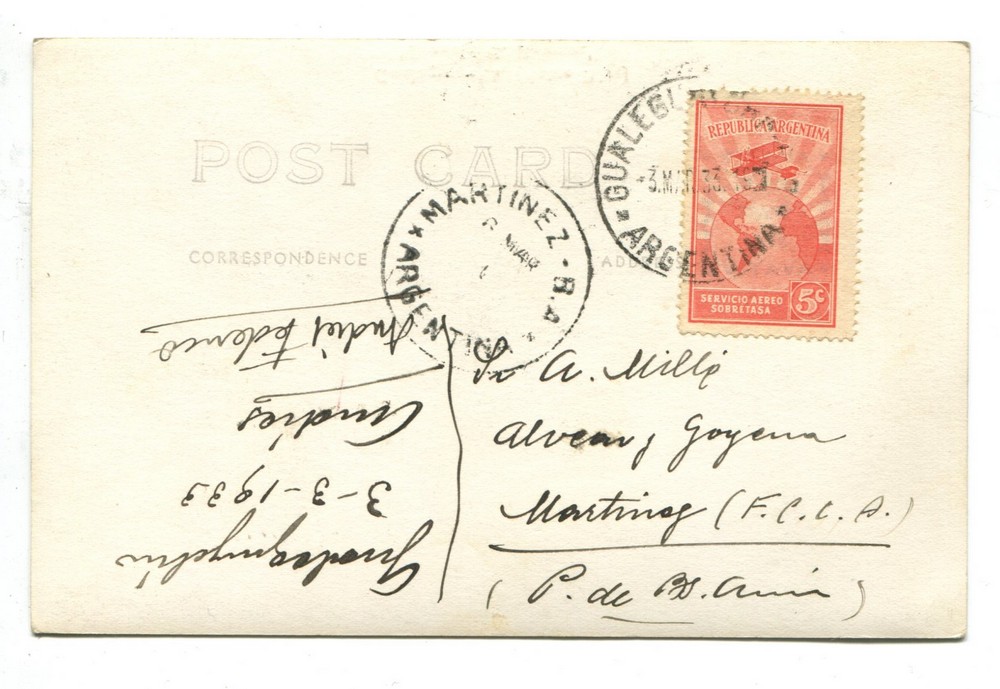 POST CARD
CORRESPONDENCE
MARTINEZ - B.A.
* ARGENTINA *
MAR
GUALEGUAYCHU
-3.MAR.33.
ARGENTINA
REPUBLICA ARGENTINA
SERVICIO AEREO
SOBRETASA
5c
Sr A. Mill
Alvear y Goyena
Martinez (F.C.C.A.)
(P. de Bs. Aires)
Gualeguaychú
3-3-1933
Andrés
Federico